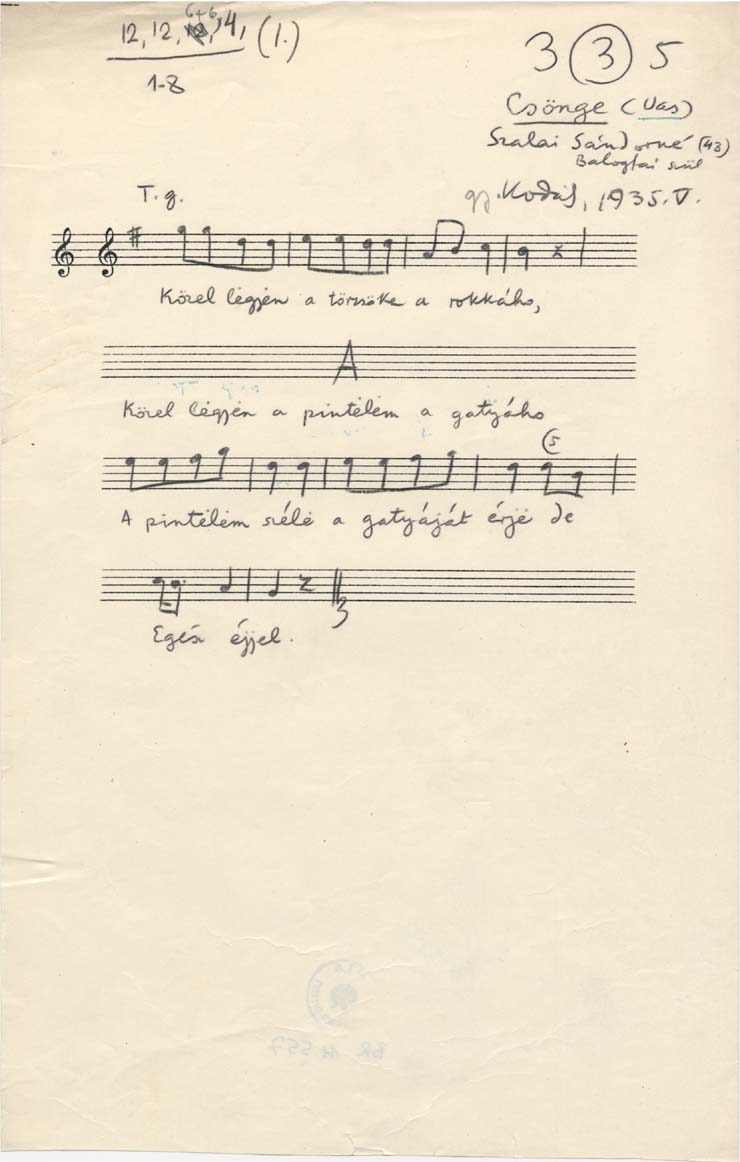 12, 12, 6+6, 4, (1.)
1-8
3 (3) 5
Csönge (Vas)
Szalai Sándorné (43)
szül
T. g.
gy. Kodály, 1935. V.
Közel légyjën a törzsöke a rokkáho,
A
Közel légyjën a pintëlëm a gatyáho
(5)
A pintëlëm szélë a gatyáját érjë de
3
Egész éjjel.
BR